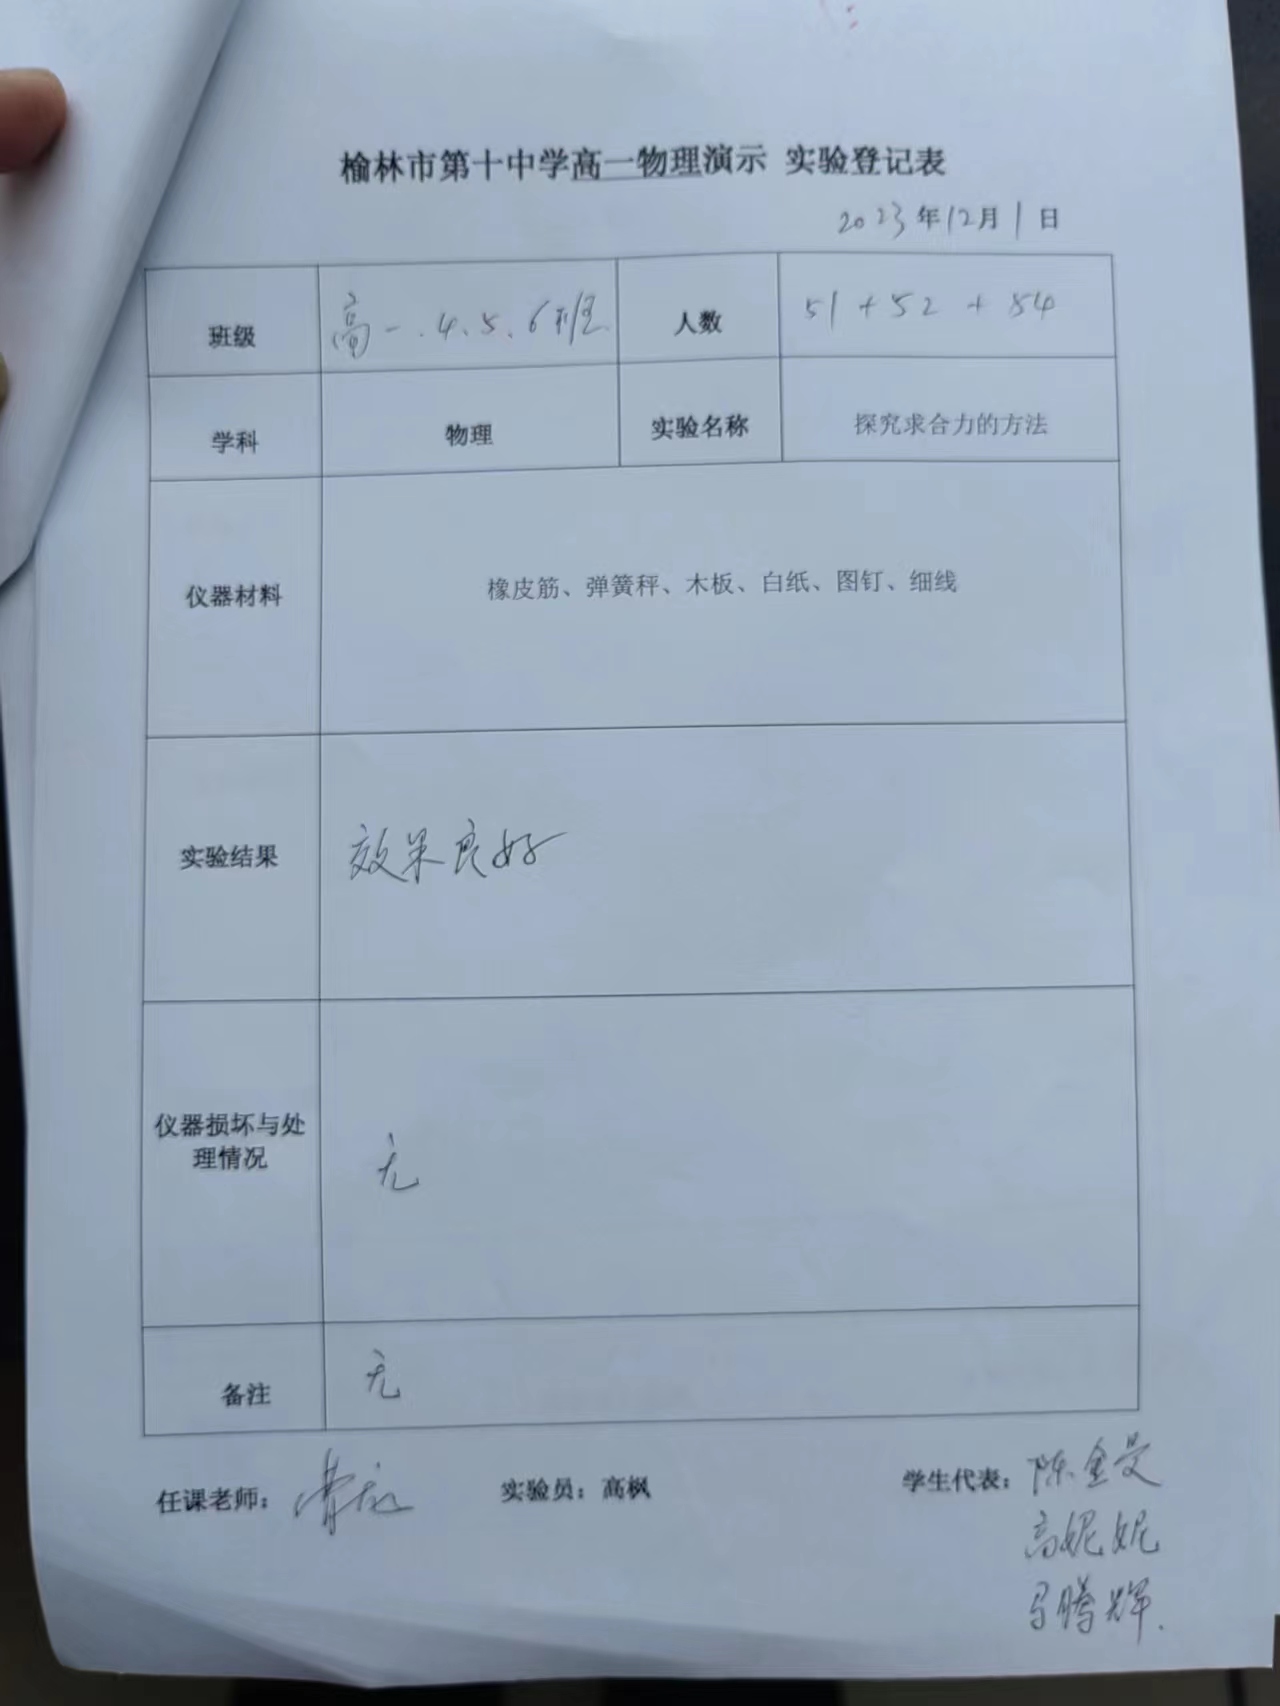 榆林市第十中学高一物理演示 实验登记表
2023年12月1日
班级 高一.4、5、6班 人数 51+52+54
学科 物理 实验名称 探究求合力的方法
仪器材料 橡皮筋、弹簧秤、木板、白纸、图钉、细线
实验结果 效果良好
仪器损坏与处
理情况 无
备注 无
任课老师： 实验员：高枫 学生代表：陈金旻
高妮妮
马腾辉.